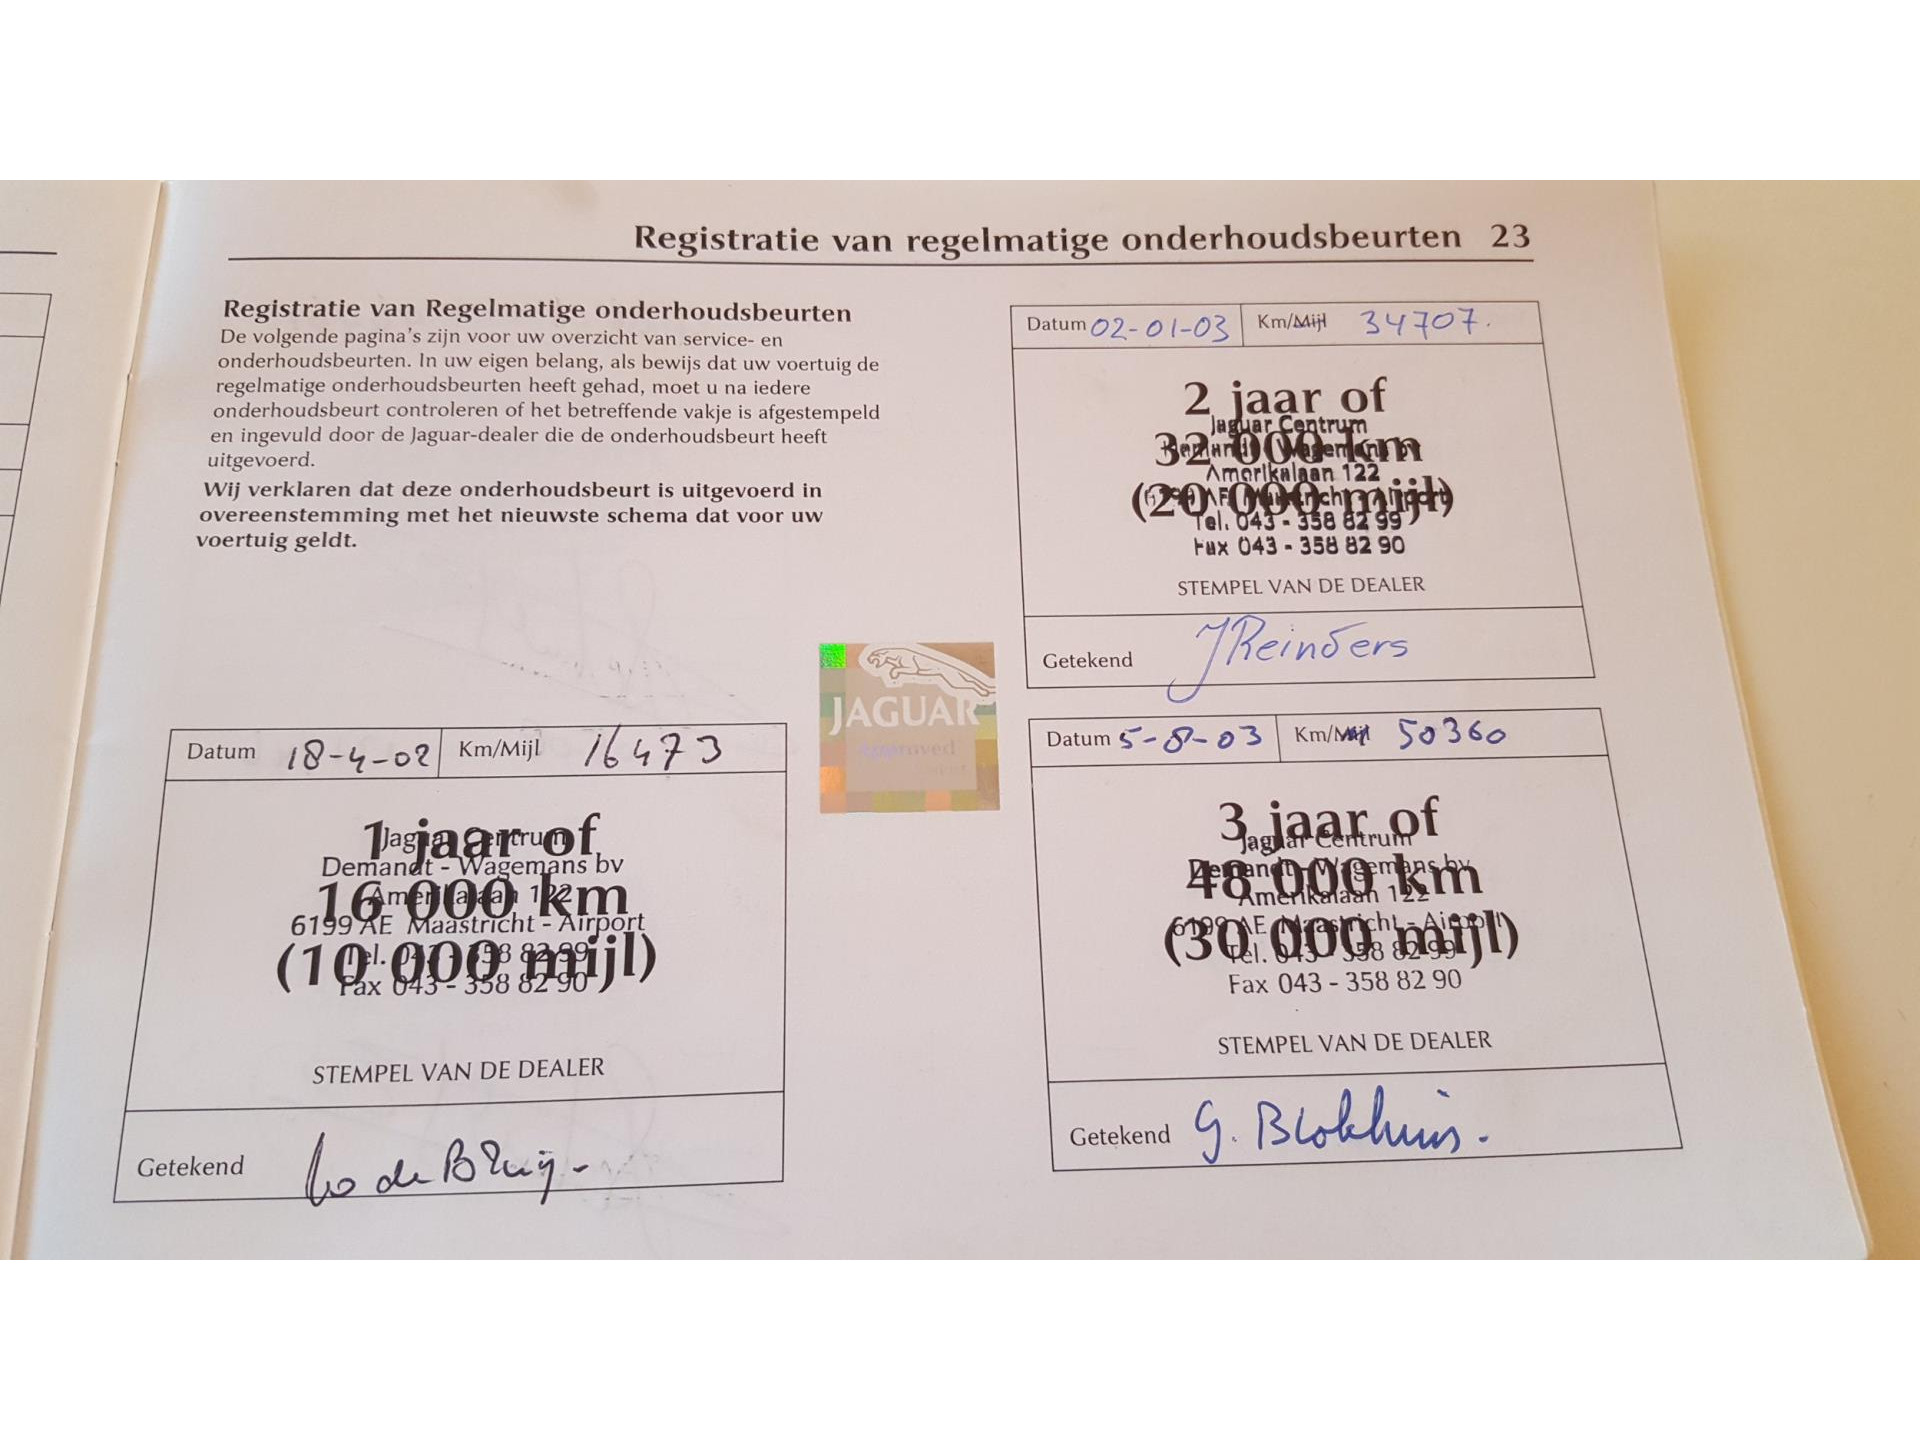 Registratie van regelmatige onderhoudsbeurten 23
Registratie van Regelmatige onderhoudsbeurten
De volgende pagina's zijn voor uw overzicht van service- en
onderhoudsbeurten. In uw eigen belang, als bewijs dat uw voertuig de
regelmatige onderhoudsbeurten heeft gehad, moet u na iedere
onderhoudsbeurt controleren of het betreffende vakje is afgestempeld
en ingevuld door de Jaguar-dealer die de onderhoudsbeurt heeft
uitgevoerd.
Wij verklaren dat deze onderhoudsbeurt is uitgevoerd in
overeenstemming met het nieuwste schema dat voor uw
voertuig geldt.
JAGUAR
approved
Datum 18-4-02 Km/Mijl 16473
1 jaar of
Jaguar Centrum
Demandt - Wagemans bv
16 000 km
Amerikalaan 122
6199 AE Maastricht - Airport
(10 000 mijl)
Tel. 043 - 358 82 99
Fax 043 - 358 82 90
STEMPEL VAN DE DEALER
Getekend
Datum 02-01-03 Km/Mijl 34707.
2 jaar of
Jaguar Centrum
32 000 km
Demandt - Wagemans bv
Amerikalaan 122
(20 000 mijl)
6199 AE Maastricht - Airport
Tel. 043 - 358 82 99
Fax 043 - 358 82 90
STEMPEL VAN DE DEALER
Getekend J Reinders
Datum 5-8-03 Km/Mijl 50360
3 jaar of
Jaguar Centrum
Demandt - Wagemans bv
48 000 km
Amerikalaan 122
6199 AE Maastricht - Airport
(30 000 mijl)
Tel. 043 - 358 82 99
Fax 043 - 358 82 90
STEMPEL VAN DE DEALER
Getekend G. Blokhuis.